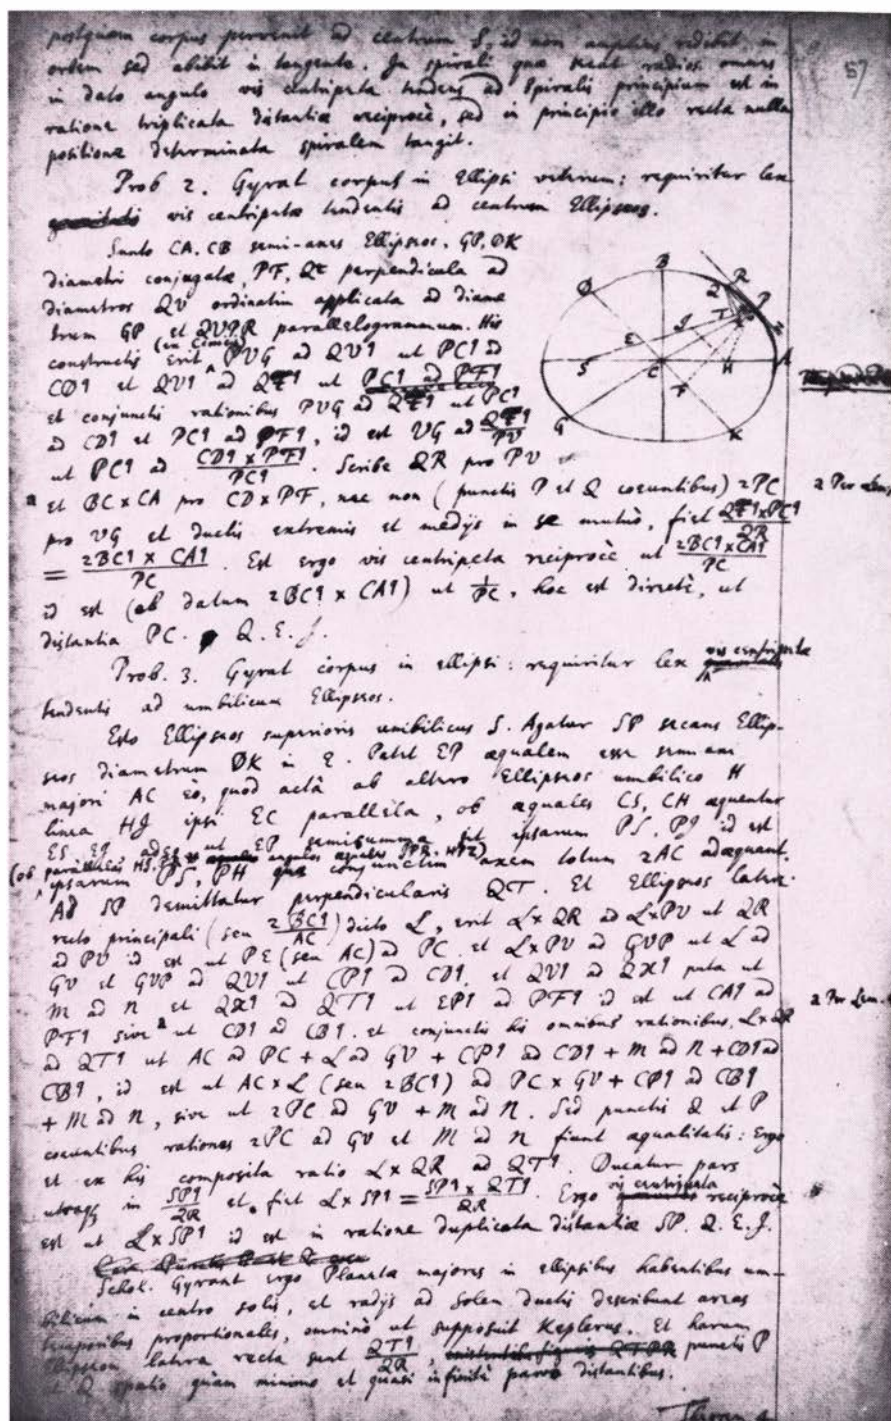 57
postquam corpus pervenit ad centrum S, id non amplius redibit in
orbem sed abibit in tangente. In spirali quæ secat radios omnes
in dato angulo vis centripeta tendens ad Spiralis principium est in
ratione triplicata distantiæ reciprocè, sed in principio illo recta nulla
positione determinata spiralem tangit.
Prob 2. Gyrat corpus in Ellipsi veterum: requiritur lex
gravitatis vis centripetæ tendentis ad centrum Ellipseos.
Sunto CA, CB semi-axes Ellipseos, GP, DK
diametri conjugatæ, PF, Qt perpendicula ad
diametros QV ordinatim applicata ad diame
trum GP et QVPR parallelogrammum. His
constructis erit (ex Conicis) PVG ad QVq ut PCq ad
CDq et QVq ad Qtq ut PCq ad PFq
et conjunctis rationibus PVG ad Qtq ut PCq
ad CDq et PCq ad PFq, id est VG ad Qtq/PV
ut PCq ad CDq × PFq/PCq. Scribe QR pro PV
a et BC×CA pro CD×PF, nec non (punctis P et Q coeuntibus) 2PC
pro VG et ductis extremis et medijs in se mutuò, fiet Qtq×PCq/QR
= 2BCq × CAq/PC. Est ergo vis centripeta reciprocè ut 2BCq×CAq/PC
id est (ob datum 2BCq × CAq) ut 1/PC, hoc est directè, ut
distantia PC. Q.E.I.
a Per Lem.
Prob. 3. Gyrat corpus in ellipsi: requiritur lex vis centripetæ
tendentis ad umbilicum Ellipseos.
Esto Ellipseos superioris umbilicus S. Agatur SP secans Ellip-
seos diametrum DK in E. Patet EP æqualem esse semi axi
majori AC eo, quod actâ ab altero Ellipseos umbilico H
linea HI ipsi EC parallela, ob æquales CS, CH æquentur
ES, EI adeo ut EP semisumma sit ipsarum PS, PI id est
(ob parallelas HI, PR et angulos æquales IPR, HPZ)
ipsarum PS, PH quæ conjunctim axem totum 2AC adæquant.
Ad SP demittatur perpendicularis QT. Et Ellipseos latere
recto principali (seu 2BCq/AC) dicto L, erit L×QR ad L×PV ut QR
ad PV id est ut PE (seu AC) ad PC. et L×PV ad GVP ut L ad
GV et GVP ad QVq ut CPq ad CDq. et QVq ad QXq puta ut
M ad N et QXq ad QTq ut EPq ad PFq id est ut CAq ad
PFq sive a ut CDq ad CBq. et conjunctis his omnibus rationibus, L×QR
a Per Lem.
ad QTq ut AC ad PC + L ad GV + CPq ad CDq + M ad N + CDq ad
CBq, id est ut AC×L (seu 2BCq) ad PC×GV + CPq ad CBq
+ M ad N, sive ut 2PC ad GV + M ad N. Sed punctis Q et P
coeuntibus rationes 2PC ad GV et M ad N fiunt æqualitatis: Ergo
et ex his composita ratio L×QR ad QTq. Ducatur pars
utraque in SPq/QR et fiet L×SPq = SPq × QTq/QR. Ergo vis centripeta reciprocè
est ut L×SPq id est in ratione duplicata distantiæ SP. Q.E.I.
Schol. Gyrant ergo Planetæ majores in ellipsibus habentibus um-
bilicum in centro solis, et radijs ad Solem ductis describunt areas
temporibus proportionales, omninò ut supposuit Keplerus. Et harum
Ellipseon latera recta sunt QTq/QR, punctis P
et Q spatio quàm minimo et quasi infinitè parvo distantibus.
B
D
Q
R
P
T
Z
I
E
S
C
H
A
F
G
K